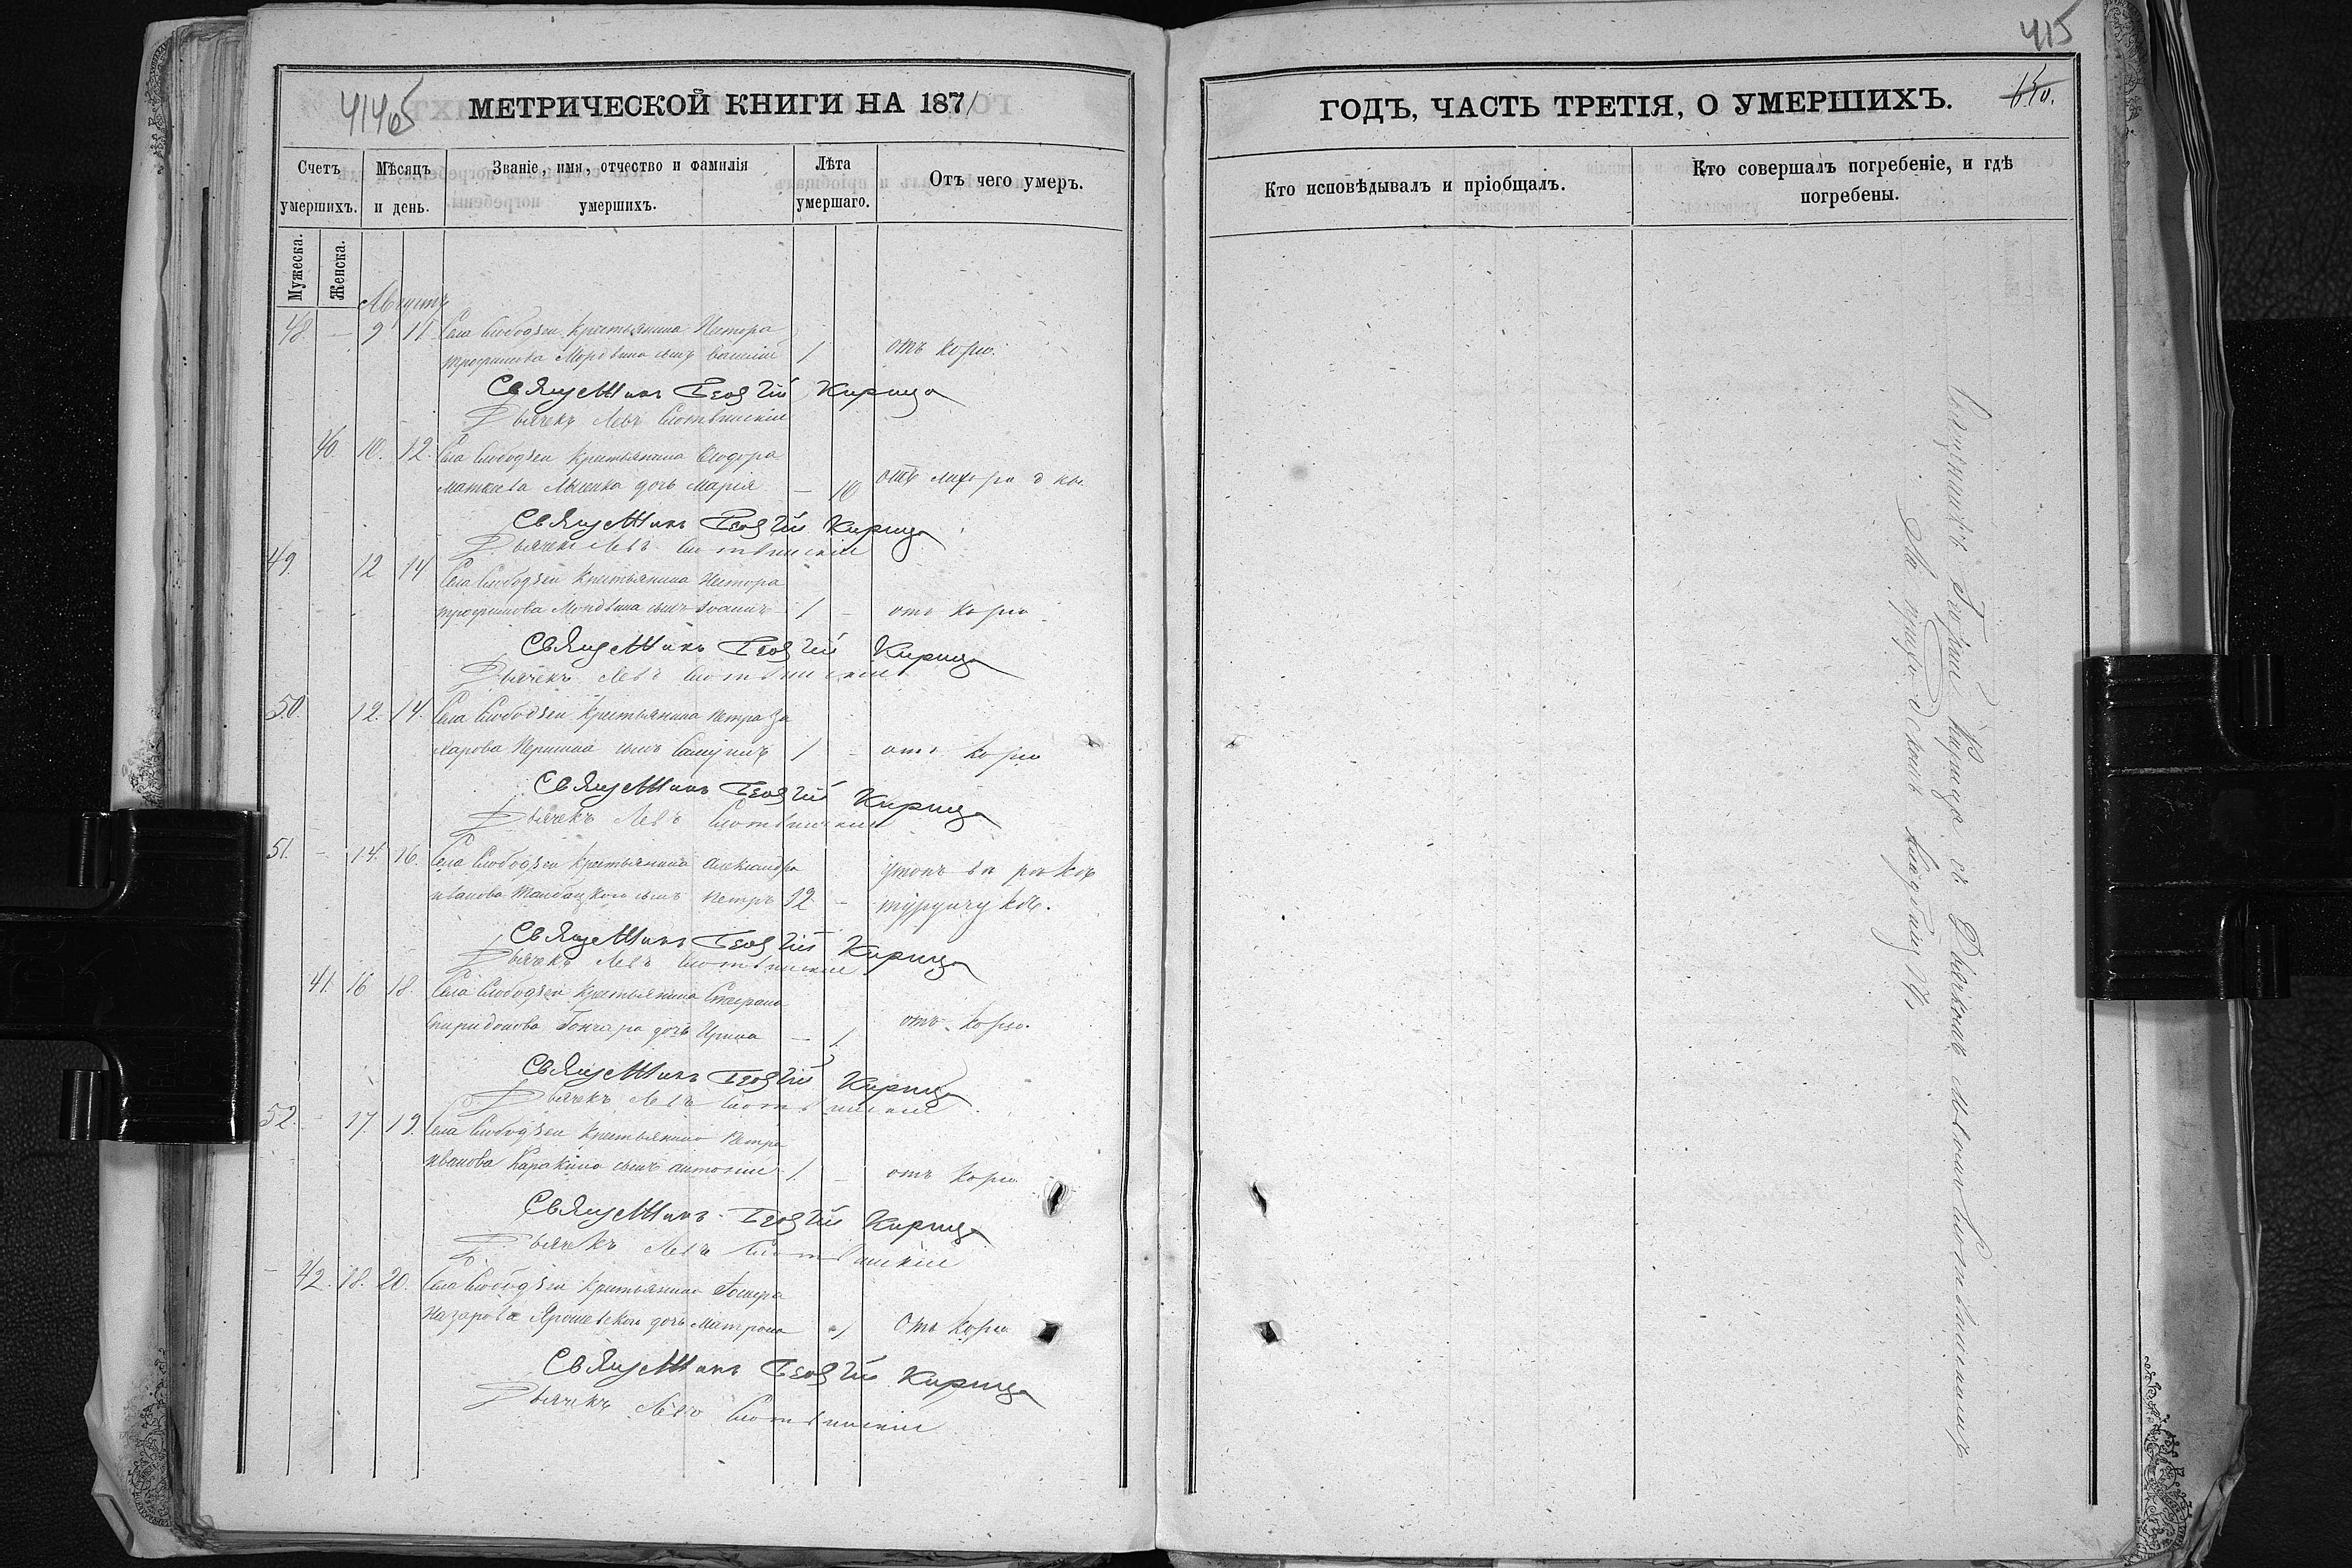 41465
МЕТРИЧЕСКОЙ КНИГИ НА 1871
Счетъ умершихъ.
Мужеска.
Женска.
Мѣсяцъ и день.
Званіе, имя, отчество и фамилія умершихъ.
Лѣта умершаго.
Отъ чего умеръ.
Августъ
48. — 9 11 Села Слободзеи крестьянина Нестора
Трофимова Мордвина сынъ Василій 1 отъ кори.
Священникъ Георгій Кирица
Дьячекъ Левъ
40. 10. 12. Села Слободзеи крестьянина Ѳеодора
Матвеева дочь Марія — 10 отъ лихорадки.
Священникъ Георгій Кирица
Дьячекъ Левъ
49. 12 14 Села Слободзеи крестьянина Нестора
Трофимова Мордвина сынъ Іоаннъ 1 – отъ кори
Священникъ Георгій Кирица
Дьячекъ Левъ
50. 12. 14. Села Слободзеи крестьянина Петра За
харова сынъ 1 – отъ кори
Священникъ Георгій Кирица
Дьячекъ Левъ
51. – 14. 16. Села Слободзеи крестьянина Александра
Иванова сынъ Петръ 22 – утонъ въ рѣкѣ
турунчукѣ.
Священникъ Георгій Кирица
Дьячекъ Левъ
41. 16 18. Села Слободзеи крестьянина
Спиридонова Гончара дочь Ирина — 1 отъ кори.
Священникъ Георгій Кирица
Дьячекъ Левъ
52. – 17. 19. Села Слободзеи крестьянина Петра
Иванова сынъ Антоній 1. – отъ кори
Священникъ Георгій Кирица
Дьячекъ Левъ
– 42. 18. 20. Села Слободзеи крестьянина
Назарова Ярошевскаго дочь Матрона 1 Отъ кори
Священникъ Георгій Кирица
Дьячекъ Левъ
415
ГОДЪ, ЧАСТЬ ТРЕТІЯ, О УМЕРШИХЪ.
Кто исповѣдывалъ и пріобщалъ.
Кто совершалъ погребеніе, и гдѣ погребены.
Священникъ Георгій Кирица съ Дьячкомъ Львомъ
На приходскомъ кладбищѣ